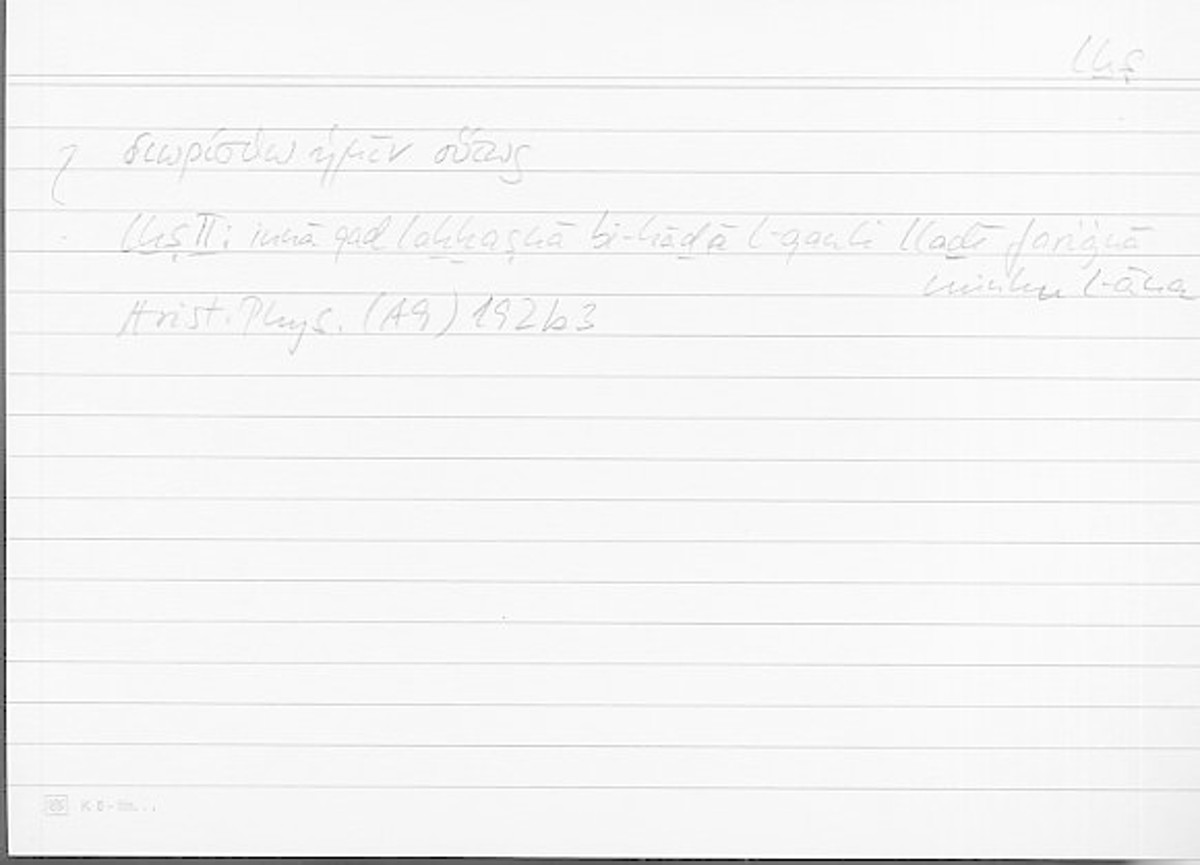 lḫṣ
διωρίσθω ἡμῖν οὕτως
lḫṣ II: innā qad laḫḫaṣnā bi-hāḏā l-qauli llaḏī fariġnā
minhu l-āna
Arist. Phys. (A9) 192b3